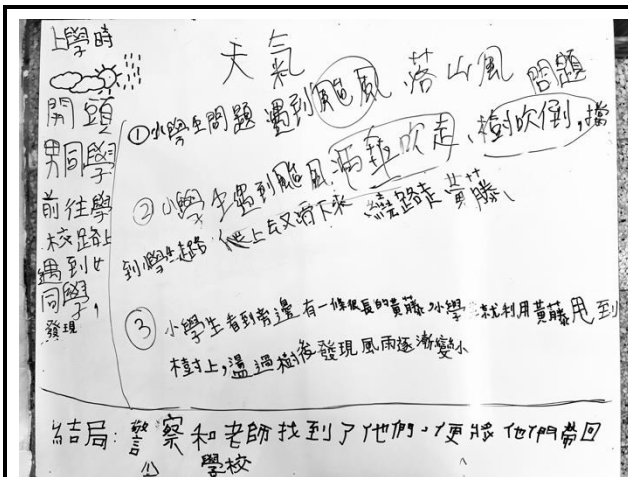 上學時
天氣
落山風 問題
開頭
男同學
前往學
校路上
遇到女
同學，
發現
①小學生問題 遇到颱風
②小學生遇到颱風，雨傘吹走、樹吹倒，擋
到學生起路．爬上去又滑下來 繞路走 黃藤、
③小學生看到旁邊有一條很長的黃藤，小學 就利用黃藤甩到
樹上，盪過樹後發現風雨逐漸變小
結局：警察和老師找到了他們，便將他們帶回
學校